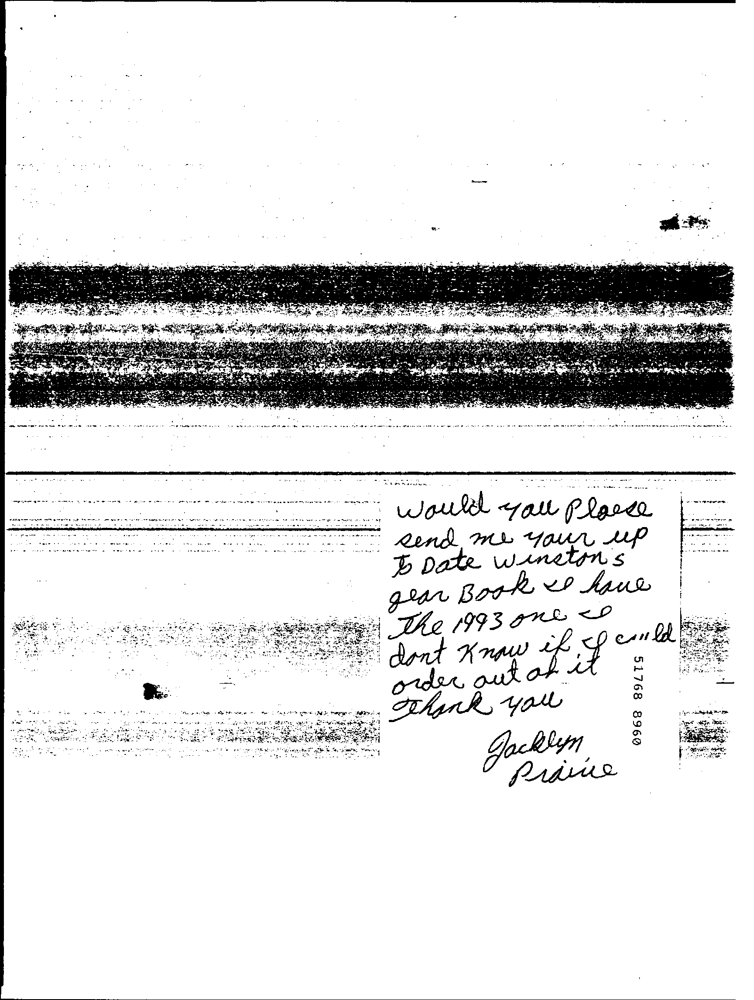 would you Plaese
send me your up
To Date Winston's
gear Book I have
The 1993 one I
dont Know if I could
order out of it
Thank you
Jacklyn
51768 8960